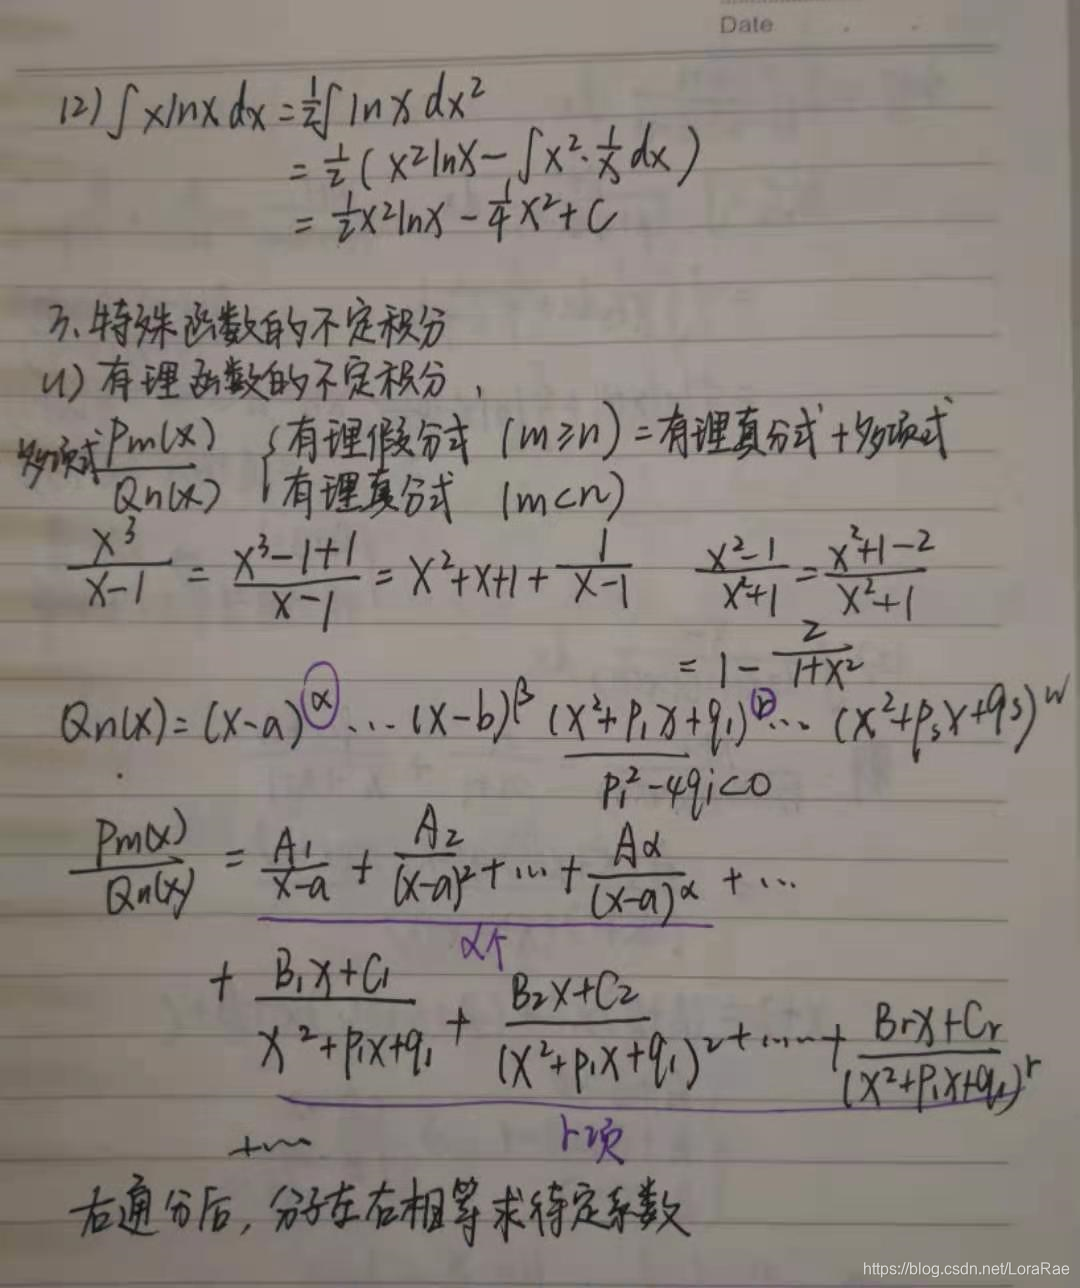 Date
(2) ∫xlnxdx = 1/2∫lnxdx²
= 1/2(x²lnx - ∫x²·1/x dx)
= 1/2x²lnx - 1/4x² + C
3、特殊函数的不定积分
(1) 有理函数的不定积分
多项式 Pm(x)/Qn(x) { 有理假分式 (m≥n) = 有理真分式 + 多项式
有理真分式 (m<n)
x³/(x-1) = (x³-1+1)/(x-1) = x²+x+1 + 1/(x-1) (x²-1)/(x²+1) = (x²+1-2)/(x²+1)
= 1 - 2/(1+x²)
Qn(x) = (x-a)^α ... (x-b)^β (x²+p₁x+q₁)^r ... (x²+pₛx+qₛ)^w
pᵢ²-4qᵢ<0
Pm(x)/Qn(x) = A₁/(x-a) + A₂/(x-a)² + ... + Aα/(x-a)^α + ...
α个
+ (B₁x+C₁)/(x²+p₁x+q₁) + (B₂x+C₂)/(x²+p₁x+q₁)² + ...... + (Brx+Cr)/(x²+p₁x+q₁)^r
r项
+...
右通分后, 分子左右相等求待定系数
https://blog.csdn.net/LoraRae